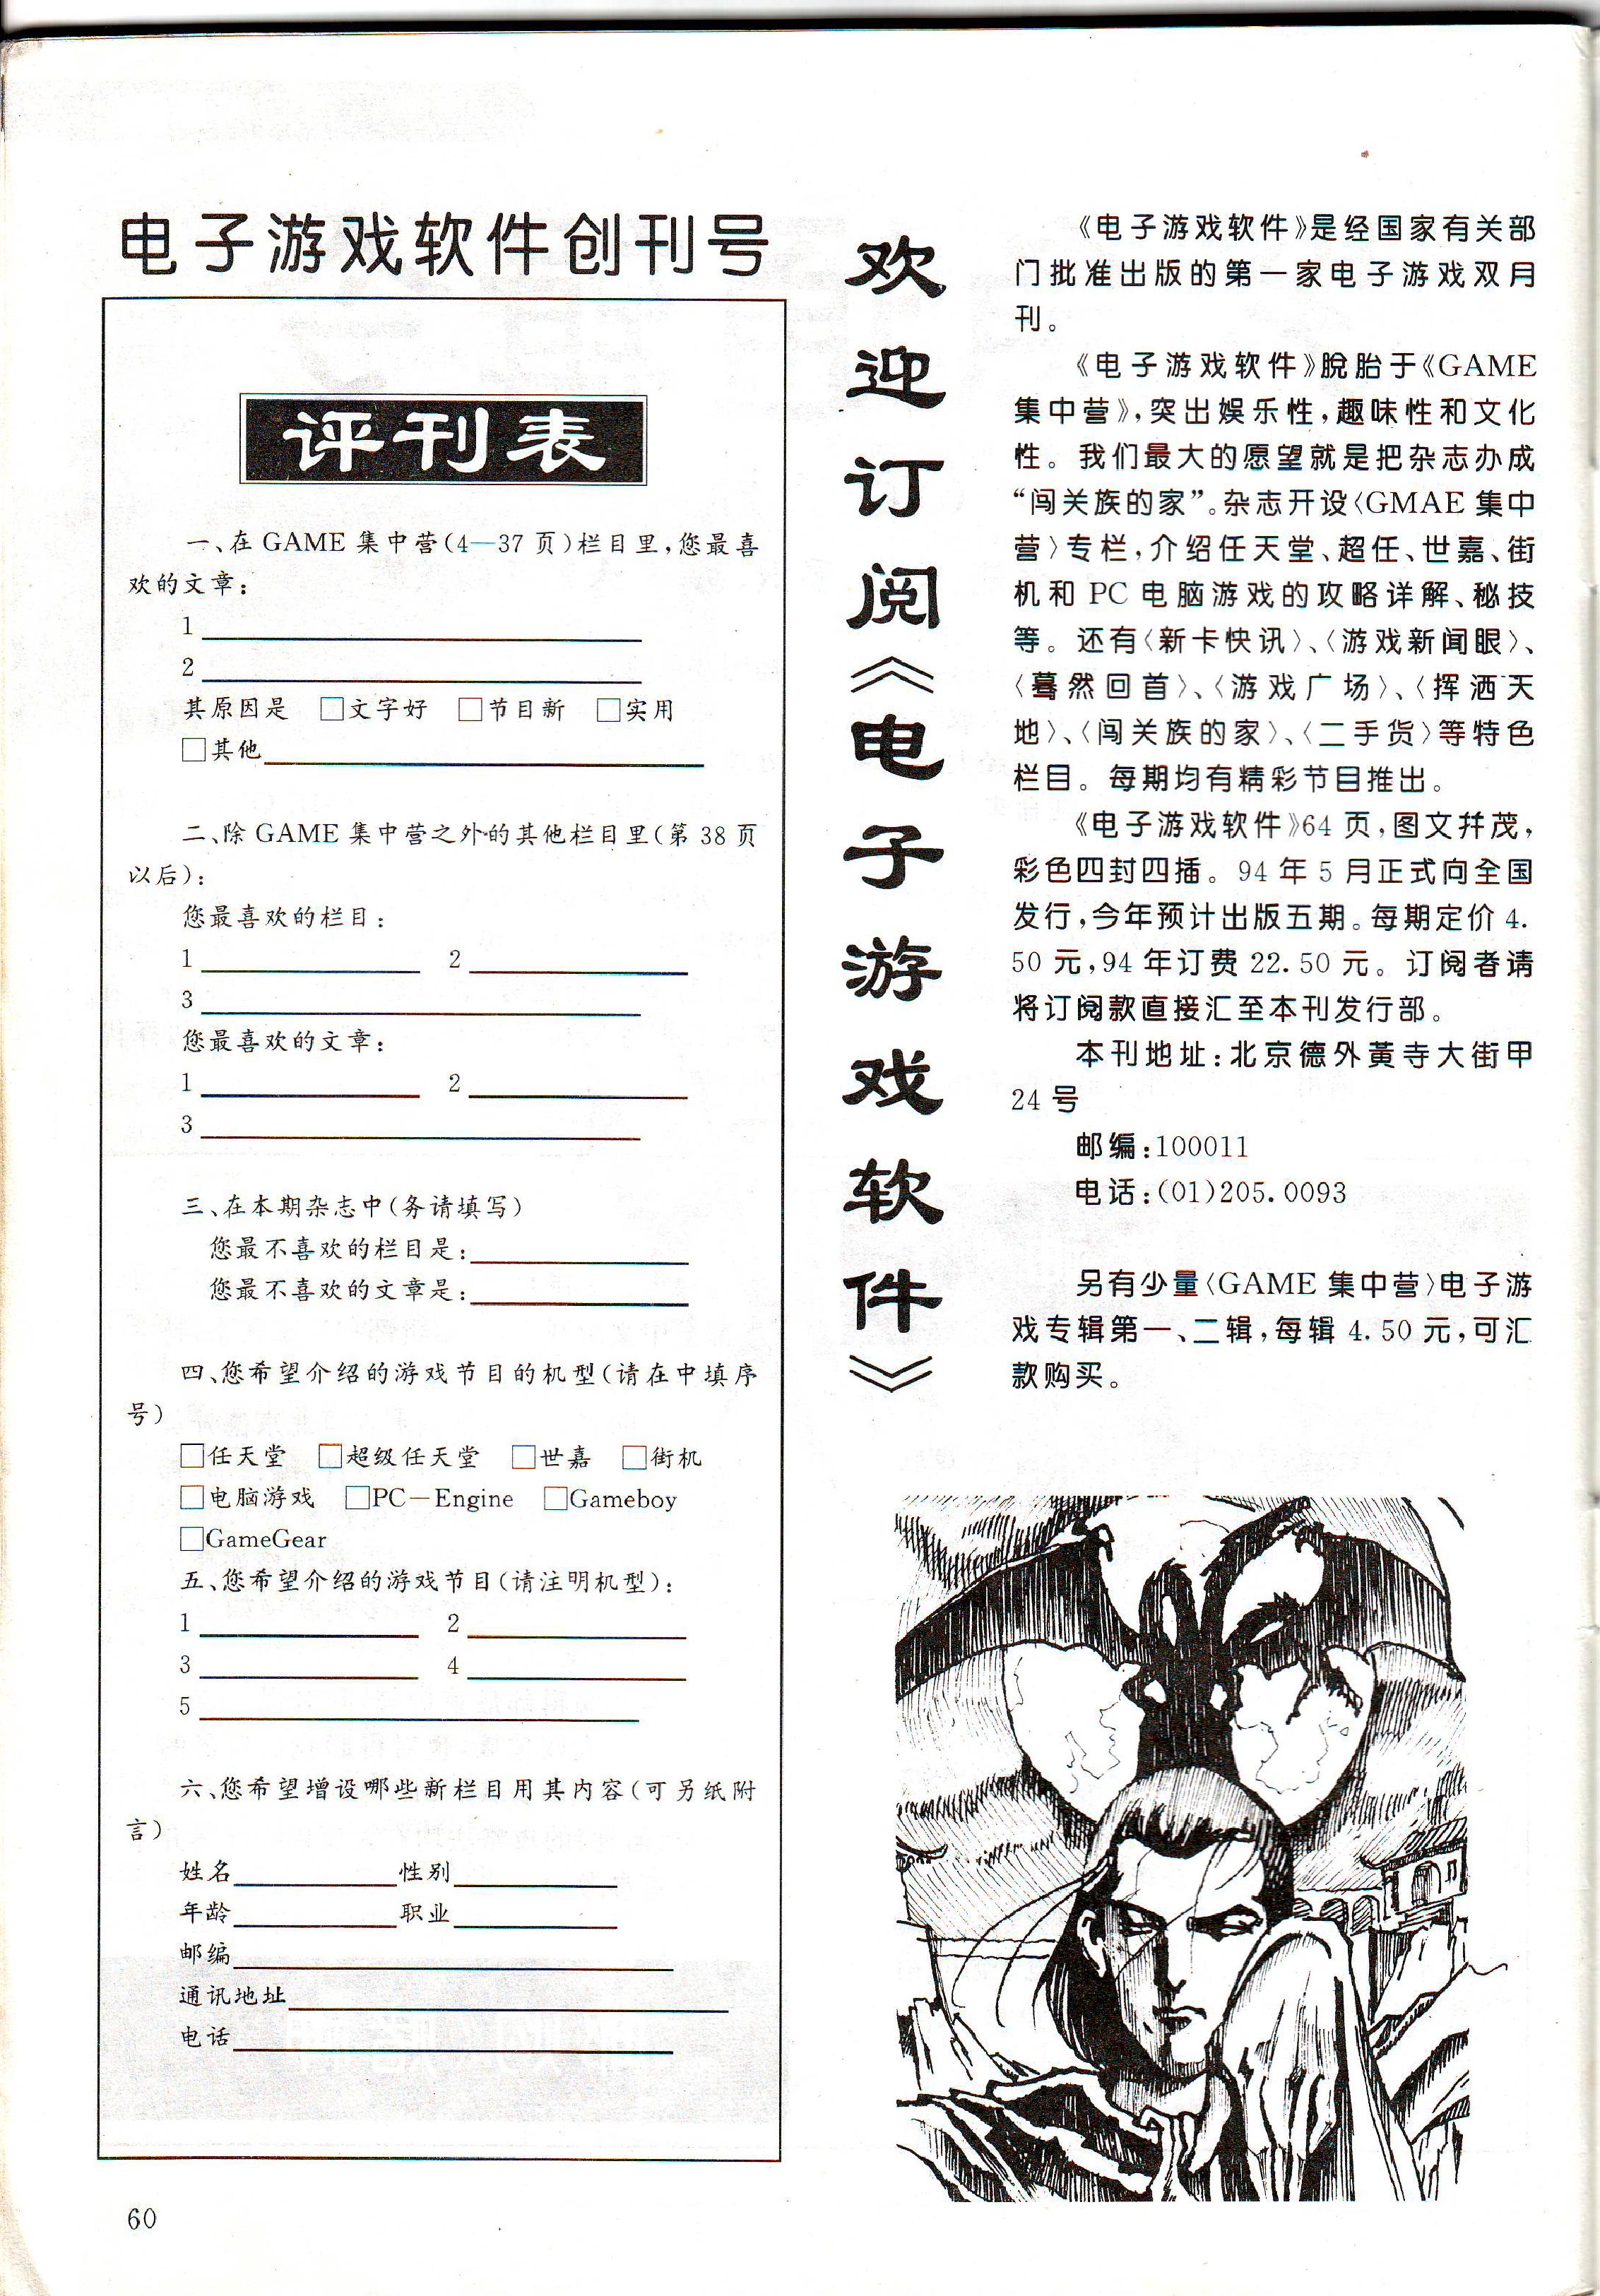 电子游戏软件创刊号
评刊表
一、在 GAME 集中营(4—37 页)栏目里,您最喜
欢的文章:
1
2
其原因是 □文字好 □节目新 □实用
□其他
二、除 GAME 集中营之外的其他栏目里(第 38 页
以后):
您最喜欢的栏目:
1 2
3
您最喜欢的文章:
1 2
3
三、在本期杂志中(务请填写)
您最不喜欢的栏目是:
您最不喜欢的文章是:
四、您希望介绍的游戏节目的机型(请在中填序
号)
□任天堂 □超级任天堂 □世嘉 □街机
□电脑游戏 □PC—Engine □Gameboy
□GameGear
五、您希望介绍的游戏节目(请注明机型):
1 2
3 4
5
六、您希望增设哪些新栏目用其内容(可另纸附
言)
姓名 性别
年龄 职业
邮编
通讯地址
电话
60
欢迎订阅《电子游戏软件》
《电子游戏软件》是经国家有关部
门批准出版的第一家电子游戏双月
刊。
《电子游戏软件》脱胎于《GAME
集中营》,突出娱乐性,趣味性和文化
性。我们最大的愿望就是把杂志办成
“闯关族的家”。杂志开设〈GMAE 集中
营〉专栏,介绍任天堂、超任、世嘉、街
机和 PC 电脑游戏的攻略详解、秘技
等。还有〈新卡快讯〉、〈游戏新闻眼〉、
〈蓦然回首〉、〈游戏广场〉、〈挥洒天
地〉、〈闯关族的家〉、〈二手货〉等特色
栏目。每期均有精彩节目推出。
《电子游戏软件》64 页,图文并茂,
彩色四封四插。94 年 5 月正式向全国
发行,今年预计出版五期。每期定价 4.
50 元,94 年订费 22.50 元。订阅者请
将订阅款直接汇至本刊发行部。
本刊地址:北京德外黄寺大街甲
24 号
邮编:100011
电话:(01)205.0093
另有少量〈GAME 集中营〉电子游
戏专辑第一、二辑,每辑 4.50 元,可汇
款购买。